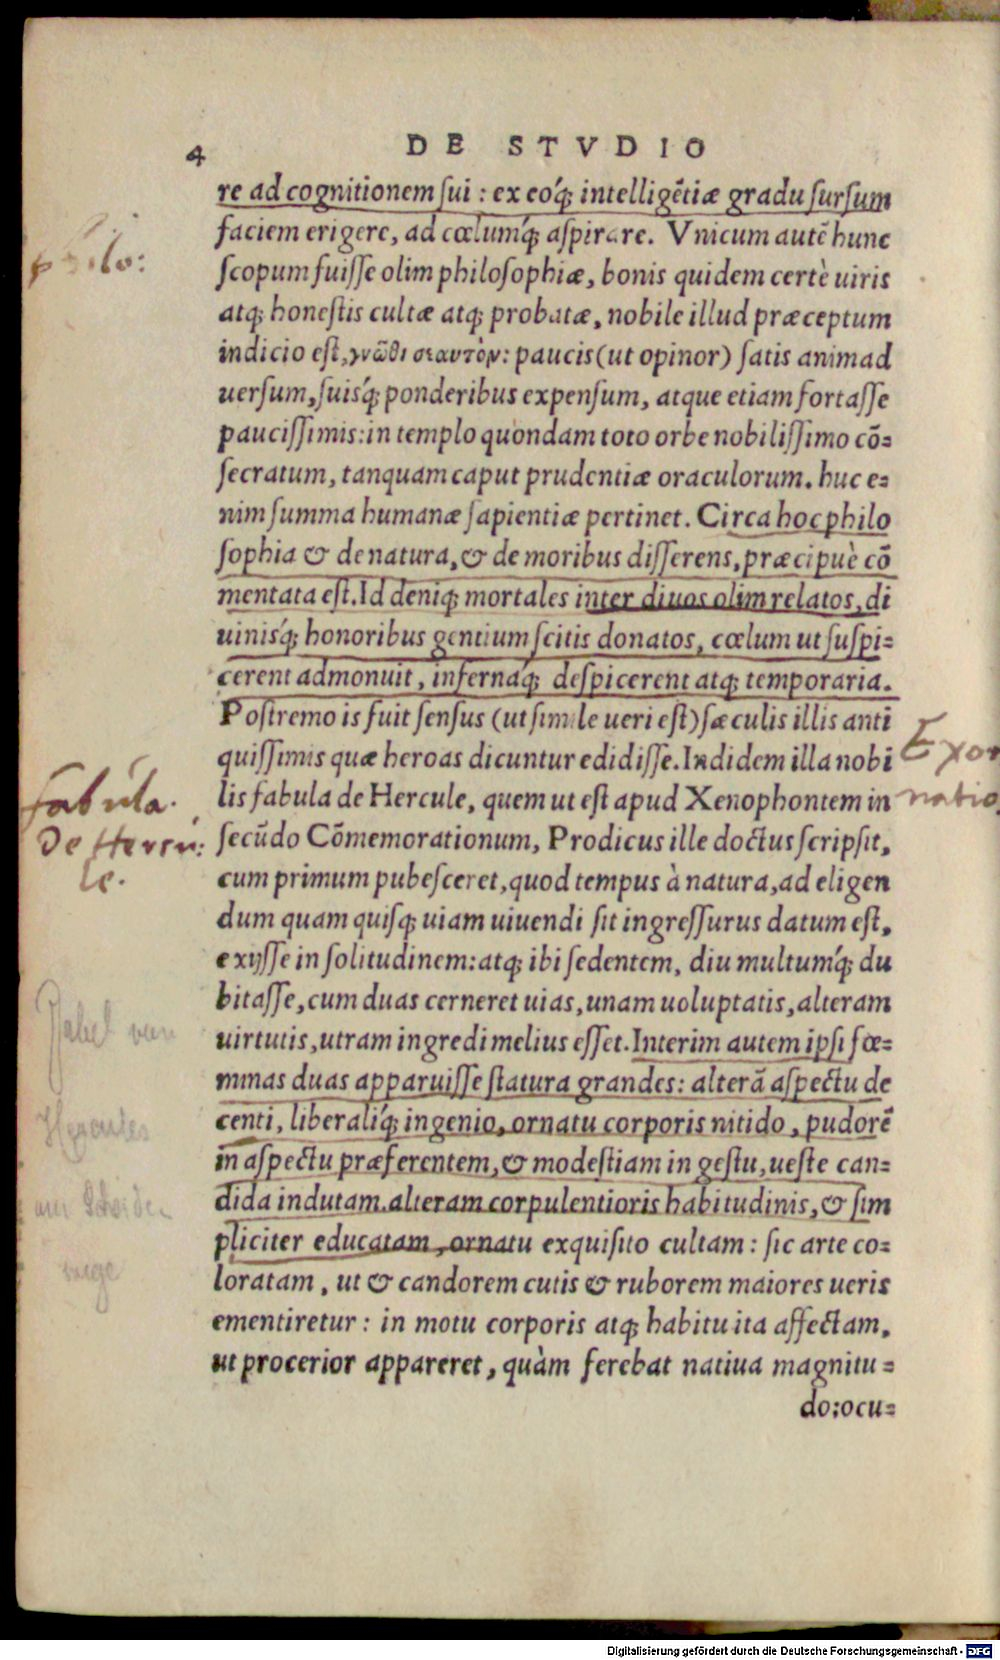 4 DE STVDIO
re ad cognitionem ſui : ex eóq́; intelligẽtiæ gradu ſurſum
faciem erigere, ad cœlumq́; aſpirare. Vnicum autẽ hunc
ſcopum fuiſſe olim philoſophiæ, bonis quidem certè uiris
atq; honeſtis cultæ atq; probatæ, nobile illud præceptum
indicio eſt, γνῶθι σεαυτὸν: paucis (ut opinor) ſatis animad
uerſum, ſuisq́; ponderibus expenſum, atque etiam fortaſſe
pauciſſimis: in templo quondam toto orbe nobiliſſimo cõ=
ſecratum, tanquam caput prudentiæ oraculorum. huc e=
nim ſumma humanæ ſapientiæ pertinet. Circa hoc philo
ſophia & de natura, & de moribus diſſerens, præcipuè cõ
mentata eſt. Id deniq; mortales inter diuos olim relatos, di
uinisq́; honoribus gentium ſcitis donatos, cœlum ut ſuſpi=
cerent admonuit, infernaq́; deſpicerent atq; temporaria.
Poſtremo is fuit ſenſus (ut ſimile ueri eſt) ſæculis illis anti
quiſſimis quæ heroas dicuntur edidiſſe. Indidem illa nobi
lis fabula de Hercule, quem ut eſt apud Xenophontem in
ſecũdo Cõmemorationum, Prodicus ille doctus ſcripſit,
cum primum pubeſceret, quod tempus à natura, ad eligen
dum quam quiſq; uiam uiuendi ſit ingreſſurus datum eſt,
exijſſe in ſolitudinem: atq; ibi ſedentem, diu multumq́; du
bitaſſe, cum duas cerneret uias, unam uoluptatis, alteram
uirtutis, utram ingredi melius eſſet. Interim autem ipſi fœ=
minas duas apparuiſſe ſtatura grandes: alterã aſpectu de
centi, liberaliq́; ingenio, ornatu corporis nitido, pudorẽ
in aſpectu præferentem, & modeſtiam in geſtu, ueſte can=
dida indutam. alteram corpulentioris habitudinis, & ſim
pliciter educatam, ornatu exquiſito cultam : ſic arte co=
loratam, ut & candorem cutis & ruborem maiores ueris
ementiretur : in motu corporis atq; habitu ita affectam,
ut procerior appareret, quàm ferebat natiua magnitu=
do: ocu=
philo:
fabula.
De Hercu:
le.
Exor
natio.
Fabel von
Hercules
am Scheide
wege
Digitalisierung gefördert durch die Deutsche Forschungsgemeinschaft - DFG